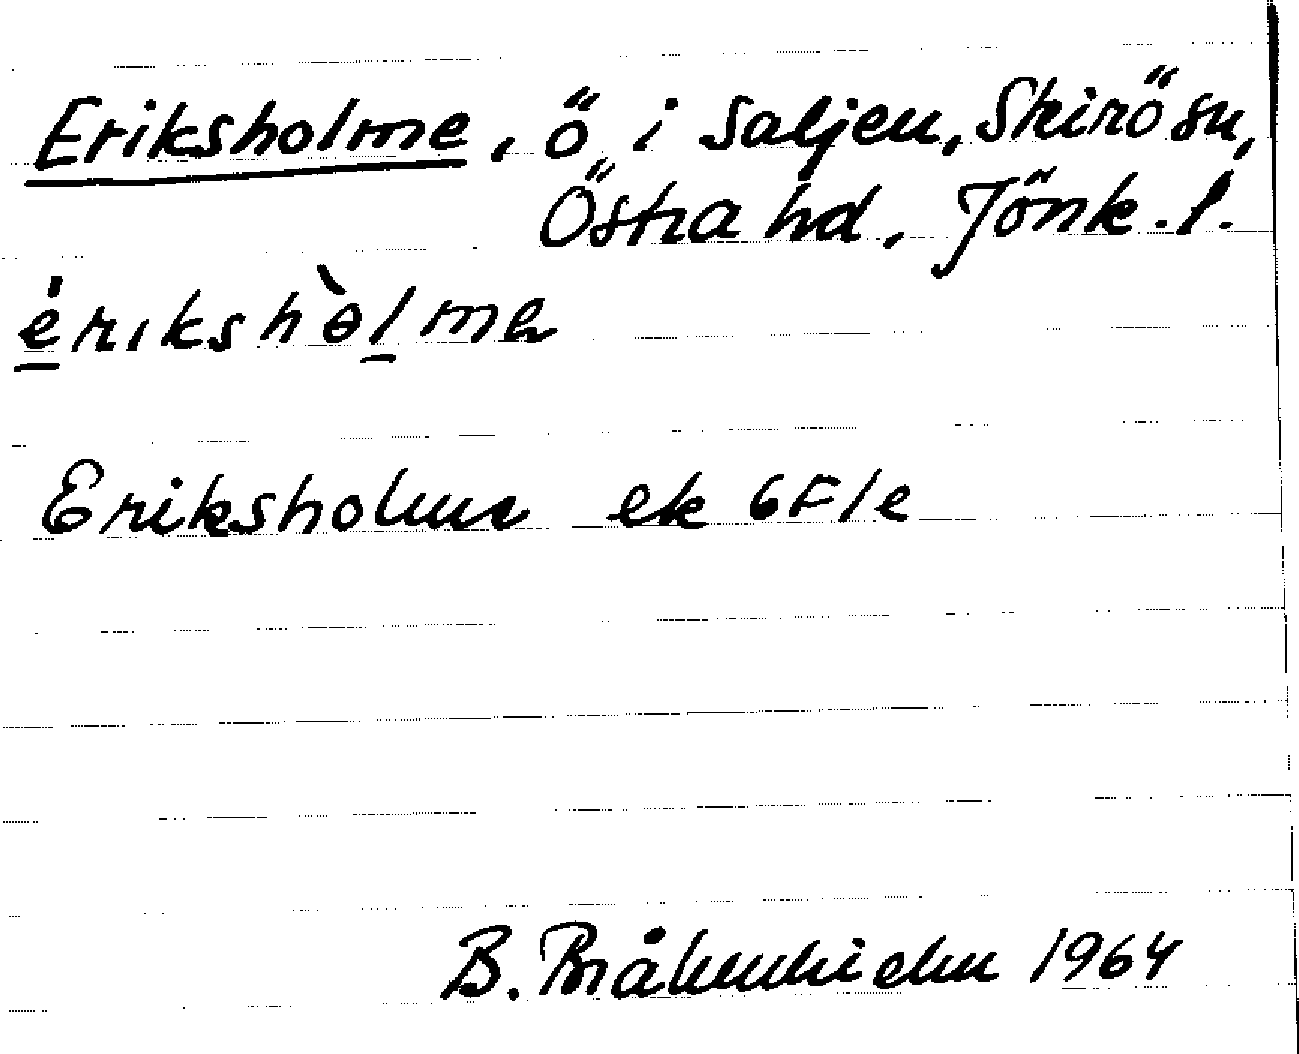 Eriksholme, ö i Saljen, Skirö sn,
Östra hd, Jönk. l.
èrikshòlmə
Eriksholme ek 6F1e
B. 1964